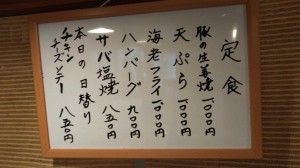 定食
豚の生姜焼 1000円
天ぷら 1000円
海老フライ 1000円
ハンバーグ 900円
サバ塩焼 850円
本日の日替り
チキン
チーズソテー 850円